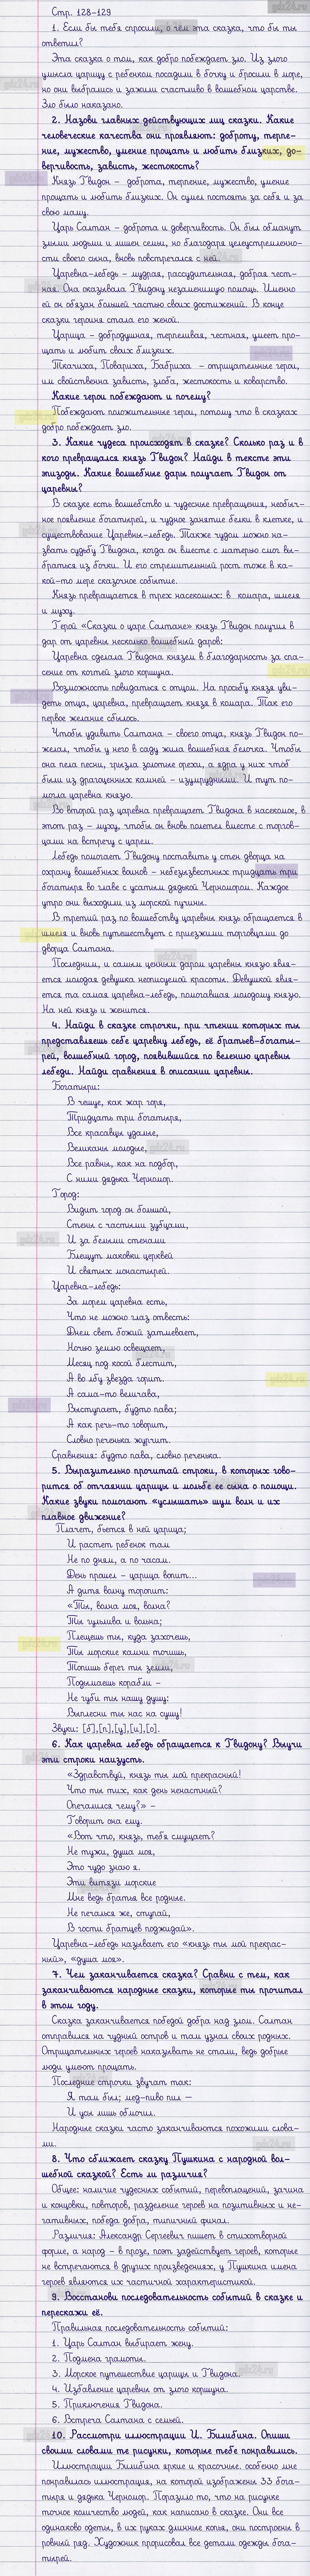 Стр. 128-129
1. Если бы тебя спросили, о чём эта сказка, что бы ты
ответил?
Эта сказка о том, как добро побеждает зло. Из злого
умысла царицу с ребенком посадили в бочку и бросили в море,
но они выбрались и зажили счастливо в волшебном царстве.
Зло было наказано.
2. Назови главных действующих лиц сказки. Какие
человеческие качества они проявляют: доброту, терпе-
ние, мужество, умение прощать и любить близких, до-
верчивость, зависть, жестокость?
Князь Гвидон – доброта, терпение, мужество, умение
прощать и любить близких. Он сумел постоять за себя и за
свою маму.
Царь Салтан – доброта и доверчивость. Он был обманут
злыми людьми и лишен семьи, но благодаря целеустремленно-
сти своего сына, вновь повстречался с ней.
Царевна-лебедь – мудрая, рассудительная, добрая чест-
ная. Она оказывала Гвидону незаменимую помощь. Именно
ей он обязан большей частью своих достижений. В конце
сказки героиня стала его женой.
Царица – добродушная, терпеливая, честная, умеет про-
щать и любит своих близких.
Ткачиха, Повариха, Бабриха – отрицательные герои,
им свойственна зависть, злоба, жестокость и коварство.
Какие герои побеждают и почему?
Побеждают положительные герои, потому что в сказках
добро побеждает зло.
3. Какие чудеса происходят в сказке? Сколько раз и в
кого превращался князь Гвидон? Найди в тексте эти
эпизоды. Какие волшебные дары получает Гвидон от
царевны?
В сказке есть волшебство и чудесные превращения, необыч-
ное появление богатырей, и чудное занятие белки в клетке, и
существование Царевны-лебедь. Также чудом можно на-
звать судьбу Гвидона, когда он вместе с матерью смог вы-
браться из бочки. И его стремительный рост тоже в ка-
кой-то мере сказочное событие.
Князь превращается в трех насекомых: в комара, шмеля
и муху.
Герой «Сказки о царе Салтане» князь Гвидон получил в
дар от царевны несколько волшебный даров:
Царевна сделала Гвидона князем в благодарность за спа-
сение от когтей злого коршуна.
Возможность повидаться с отцом. На просьбу князя уви-
деть отца, царевна, превращает князя в комара. Так его
первое желание сбылось.
Чтобы удивить Салтана – своего отца, князь Гвидон по-
желал, чтобы у него в саду жила волшебная белочка. Чтобы
она пела песни, грызла золотые орехи, а ядра у них чтоб
были из драгоценных камней – изумрудными. И тут по-
могла царевна князю.
Во второй раз царевна превращает Гвидона в насекомое, в
этот раз – муху, чтобы он вновь полетел вместе с торгов-
цами на встречу с царем.
Лебедь помогает Гвидону поставить у стен дворца на
охрану волшебных воинов – небезызвестных тридцать три
богатыря во главе с усатым дядькой Черномором. Каждое
утро они выходили из морской пучины.
В третий раз по волшебству царевны князь обращается в
шмеля и вновь путешествует с приезжими торговцами до
дворца Салтана.
Последним, и самым ценным даром царевны князю явля-
ется молодая девушка неописуемой красоты. Девушкой явля-
ется та самая царевна-лебедь, помогавшая молодому князю.
На ней князь и женится.
4. Найди в сказке строчки, при чтении которых ты
представляешь себе царевну лебедь, её братьев-богаты-
рей, волшебный город, появившийся по велению царевны
лебеди. Найди сравнения в описании царевны.
Богатыри:
В чешуе, как жар горя,
Тридцать три богатыря,
Все красавцы удалые,
Великаны молодые,
Все равны, как на подбор,
С ними дядька Черномор.
Город:
Видит город он большой,
Стены с частыми зубцами,
И за белыми стенами
Блещут маковки церквей
И святых монастырей.
Царевна-лебедь:
За морем царевна есть,
Что не можно глаз отвесть:
Днем свет божий затмевает,
Ночью землю освещает,
Месяц под косой блестит,
А во лбу звезда горит.
А сама-то величава,
Выступает, будто пава;
А как речь-то говорит,
Словно реченька журчит.
Сравнения: будто пава, словно реченька.
5. Выразительно прочитай строки, в которых гово-
рится об отчаянии царицы и мольбе ее сына о помощи.
Какие звуки помогают «услышать» шум волн и их
плавное движение?
Плачет, бьется в ней царица;
И растет ребенок там
Не по дням, а по часам.
День прошел – царица вопит...
А дитя волну торопит:
«Ты, волна моя, волна?
Ты гульлива и вольна;
Плещешь ты, куда захочешь,
Ты морские камни точишь,
Топишь берег ты земли,
Подымаешь корабли –
Не губи ты нашу душу:
Выплесни ты нас на сушу!
Звуки: [б],[п],[у],[ш],[о].
6. Как царевна лебедь обращается к Гвидону? Выучи
эти строки наизусть.
«Здравствуй, князь ты мой прекрасный!
Что ты тих, как день ненастный?
Опечалился чему?» –
Говорит она ему.
«Вот что, князь, тебя смущает?
Не тужи, душа моя,
Это чудо знаю я.
Эти витязи морские
Мне ведь братья все родные.
Не печалься же, ступай,
В гости братцев поджидай».
Царевна-лебедь называет его «князь ты мой прекрас-
ный», «душа моя».
7. Чем заканчивается сказка? Сравни с тем, как
заканчиваются народные сказки, которые ты прочитал
в этом году.
Сказка заканчивается победой добра над злом. Салтан
отправился на чудный остров и там узнал своих родных.
Отрицательных героев наказывать не стали, ведь добрые
люди умеют прощать.
Последние строчки звучат так:
Я там был; мед-пиво пил –
И усы лишь обмочил.
Народные сказки часто заканчиваются похожими слова-
ми.
8. Что сближает сказку Пушкина с народной вол-
шебной сказкой? Есть ли различия?
Общее: наличие чудесных событий, перевоплощений, зачина
и концовки, повторов, разделение героев на позитивных и не-
гативных, победа добра, типичный финал.
Различия: Александр Сергеевич пишет в стихотворной
форме, а народ – в прозе, поэт задействует героев, которые
не встречаются в других произведениях, у Пушкина имена
героев являются их частичной характеристикой.
9. Восстанови последовательность событий в сказке и
перескажи её.
Правильная последовательность событий:
1. Царь Салтан выбирает жену.
2. Подмена грамоты.
3. Морское путешествие царицы и Гвидона.
4. Избавление царевны от злого коршуна.
5. Приключения Гвидона.
6. Встреча Салтана с семьей.
10. Рассмотри иллюстрации И. Билибина. Опиши
своими словами те рисунки, которые тебе понравились.
Иллюстрации Билибина яркие и красочные. особенно мне
понравилась иллюстрация, на которой изображены 33 бога-
тыря и дядька Черномор. Поразило то, что на рисунке
точное количество людей, как написано в сказке. Они все
одинаково одеты, в их руках длинные копья, они построены в
ровный ряд. Художник прорисовал все детали одежды бога-
тырей.